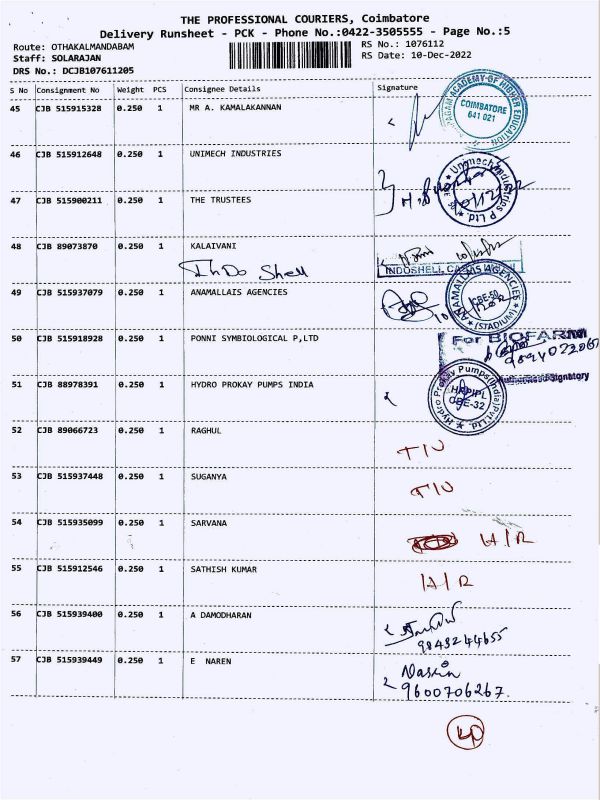 THE PROFESSIONAL COURIERS, Coimbatore
Delivery Runsheet - PCK - Phone No.:0422-3505555 - Page No.:5
Route: OTHAKALMANDABAM
RS No.: 1076112
Staff: SOLARAJAN
RS Date: 10-Dec-2022
DRS No.: DCJB107611205
S No Consignment No Weight PCS Consignee Details Signature
45 CJB 515915328 0.250 1 MR A. KAMALAKANNAN
COIMBATORE
641 021
46 CJB 515912648 0.250 1 UNIMECH INDUSTRIES
47 CJB 515900211 0.250 1 THE TRUSTEES
48 CJB 89073870 0.250 1 KALAIVANI
IhDo Shell
49 CJB 515937079 0.250 1 ANAMALLAIS AGENCIES
CBE-50
(STADIUM)
50 CJB 515918928 0.250 1 PONNI SYMBIOLOGICAL P,LTD
For BIOFARM
51 CJB 88978391 0.250 1 HYDRO PROKAY PUMPS INDIA
Hydro Prokav Pumps(India)Pvt.Ltd.
HPPIPL
CBE-32
Authorised Signatory
52 CJB 89066723 0.250 1 RAGHUL
53 CJB 515937448 0.250 1 SUGANYA
54 CJB 515935099 0.250 1 SARVANA
55 CJB 515912546 0.250 1 SATHISH KUMAR
56 CJB 515939400 0.250 1 A DAMODHARAN
9843244655
57 CJB 515939449 0.250 1 E NAREN
9600706267.